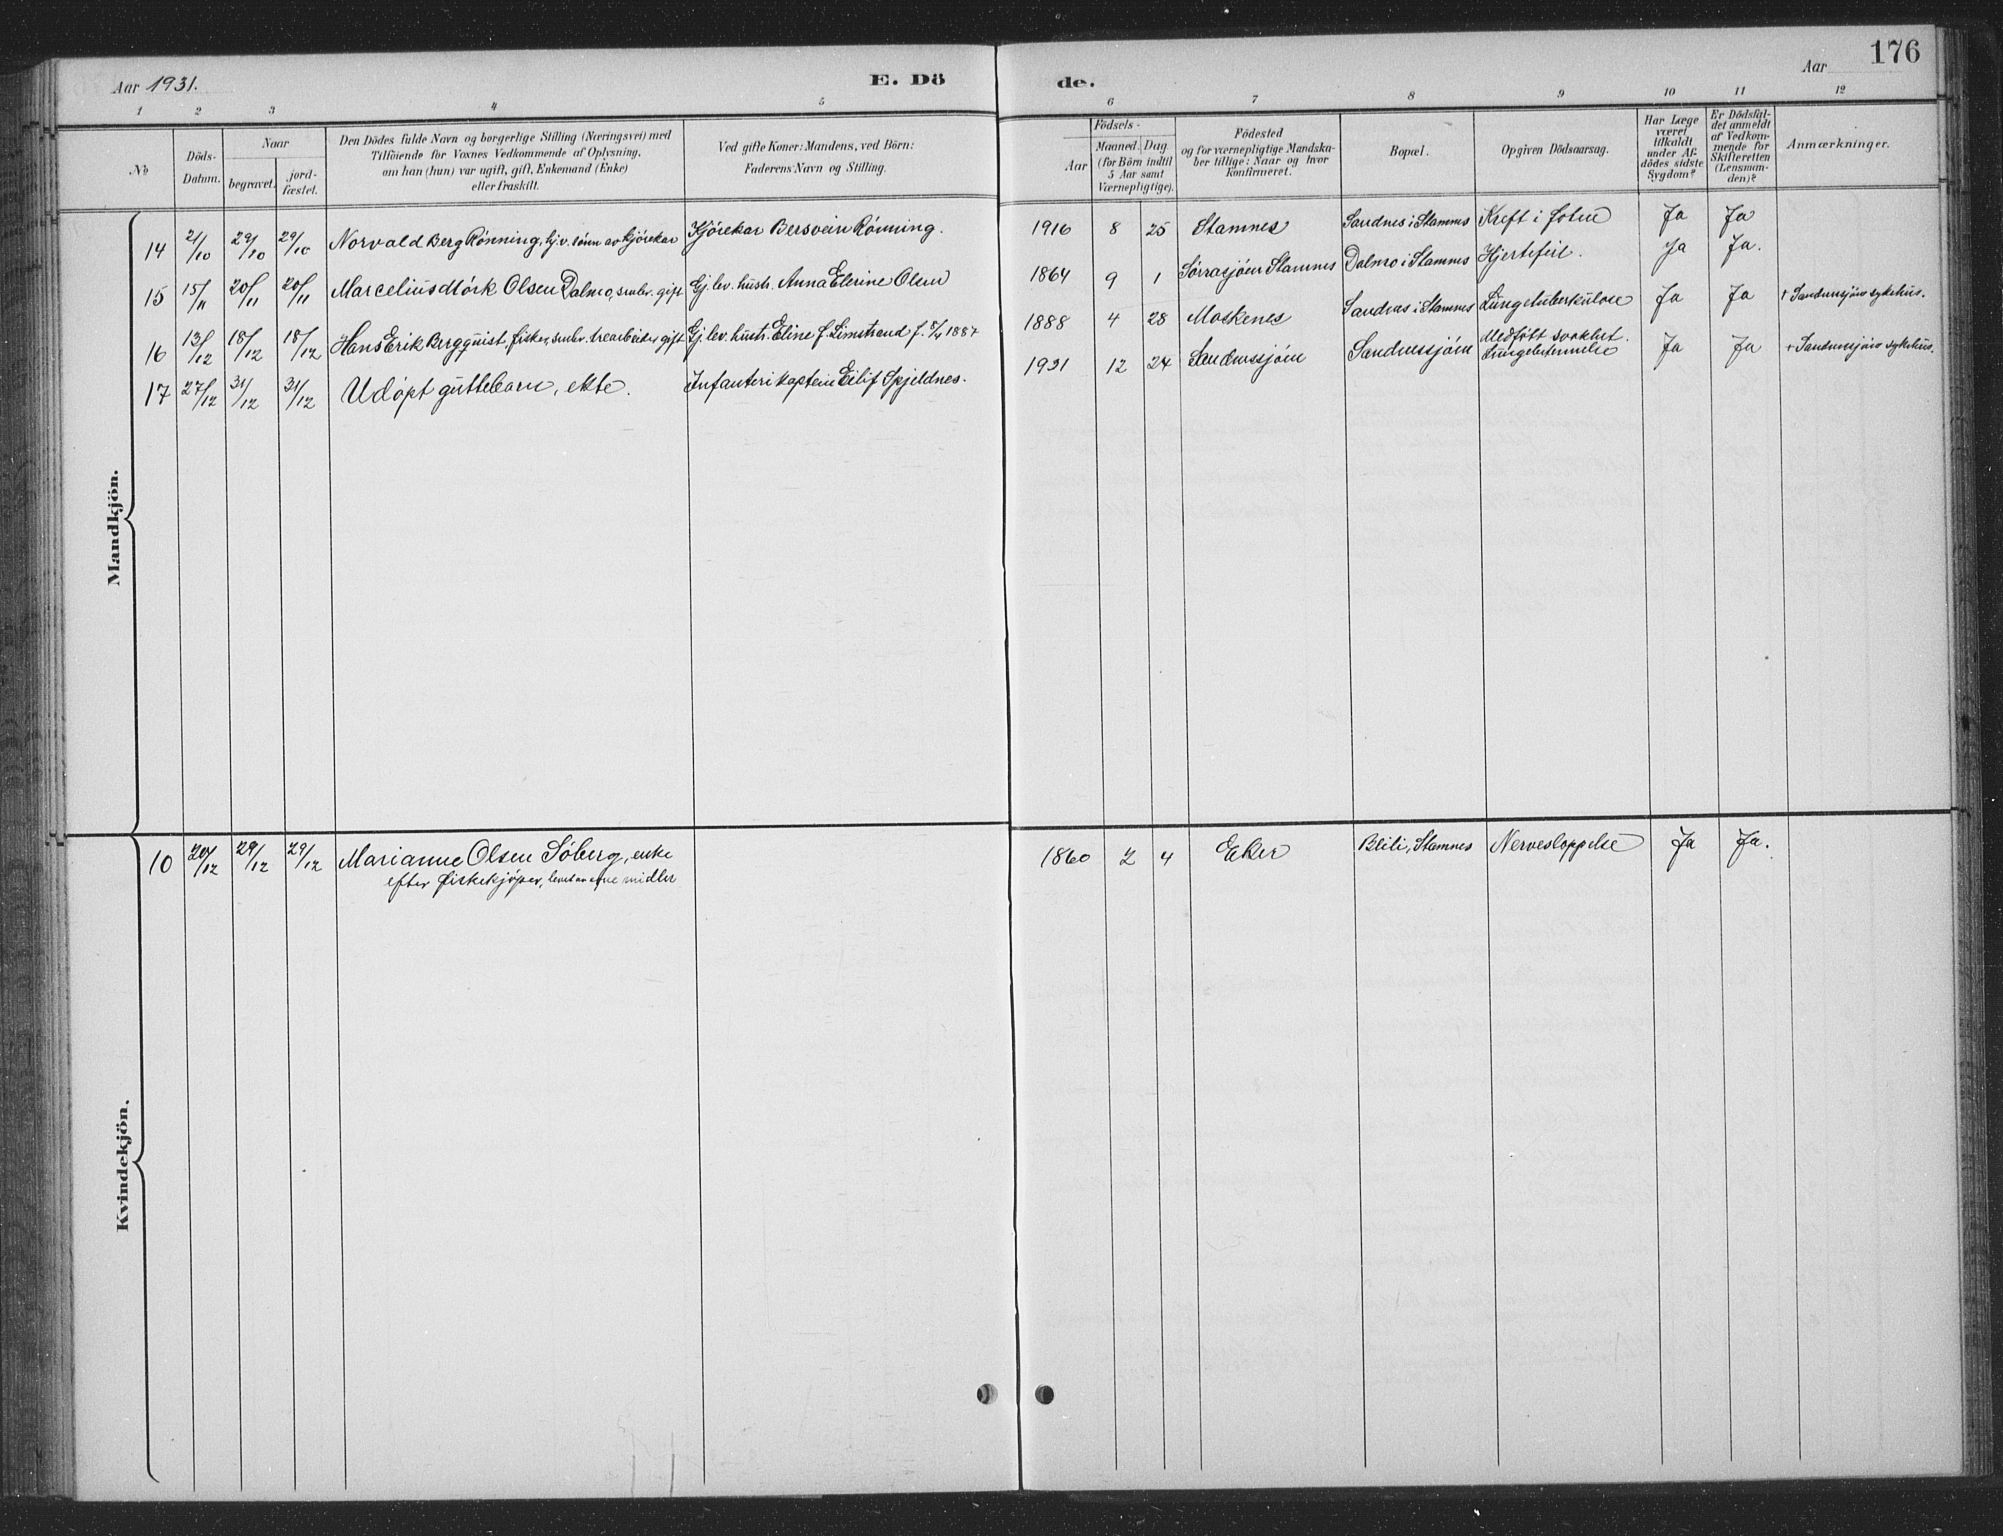 176
Aar 1931.
E. Dö
de.
Aar
1 2 3 4 5 6 7 8 9 10 11 12
No
Döds-
Datum.
Naar
begravet.
jord-
fæstet.
Den Dödes fulde Navn og borgerlige Stilling (Næringsvei) med
Tilföiende for Voxnes Vedkommende af Oplysning,
om han (hun) var ugift, gift, Enkemand (Enke)
eller fraskilt.
Ved gifte Koner: Mandens, ved Börn:
Faderens Navn og Stilling.
Födsels-
Aar
Maaned. Dag
(for Börn indtil
5 Aar samt
Værnepligtige).
Födested
og for værnepligtige Mandska-
ber tillige: Naar og hvor
Konfirmeret.
Bopæl.
Opgiven Dödsaarsag.
Har Læge
været
tilkaldt
under Af-
dödes sidste
Sygdom?
Er Dödsfal-
det anmeldt
af Vedkom-
mende for
Skifteretten
(Lensman-
den)?
Anmærkninger.
Mandkjön.
14 21/10 29/10 29/10 Norvald Berg Rønning, hj.v. sønn av kjørekar Kjørekar Bersvein Rønning. 1916 8 25 Stamnes Sandnes i Stamnes Kreft i foten Ja Ja
15 15/11 20/11 20/11 Marcelius Mörk Olsen Dalmo, smbr. gift Gj. lev. hustr. Anna Elerine Olsen 1864 9 1 Sørrasjøen Stamnes Dalmo i Stamnes Hjertefeil. Ja Ja.
16 13/12 18/12 18/12 Hans Erik Bergquist, fisker, smbr. trearbeider gift Gj. lev. hustr. Eline f. Limstrand f. 1887 1888 4 28 Moskenes Sandnes i Stamnes Lungetuberkulose Ja Ja + Sandnessjøen sykehus.
17 27/12 31/12 31/12 Udøpt guttebarn, ekte. Infanterikaptein Eilif Spjeldnes. 1931 12 24 Sandnessjøen Sandnessjøen Medfødt svakhet. Lungebetennelse Ja Ja + Sandnessjøen sykehus.
Kvindekjön.
10 20/12 29/12 29/12 Marianne Olsen Søberg, enke 1860 2 4 Eker Blili, Stamnes Nerveslappelse Ja Ja.
efter fiskekjøper, levet av egne midler